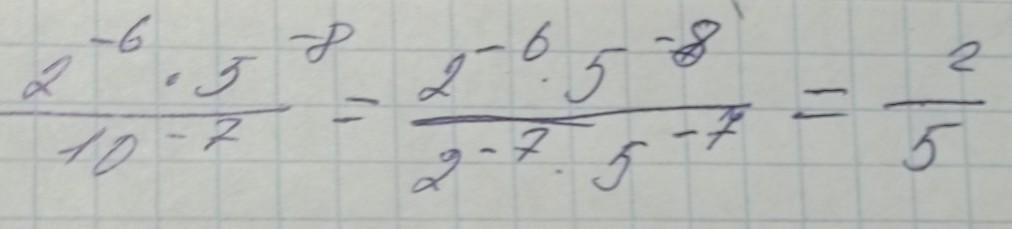 2^-6 · 5^-8 / 10^-7 = 2^-6 · 5^-8 / 2^-7 · 5^-7 = 2 / 5